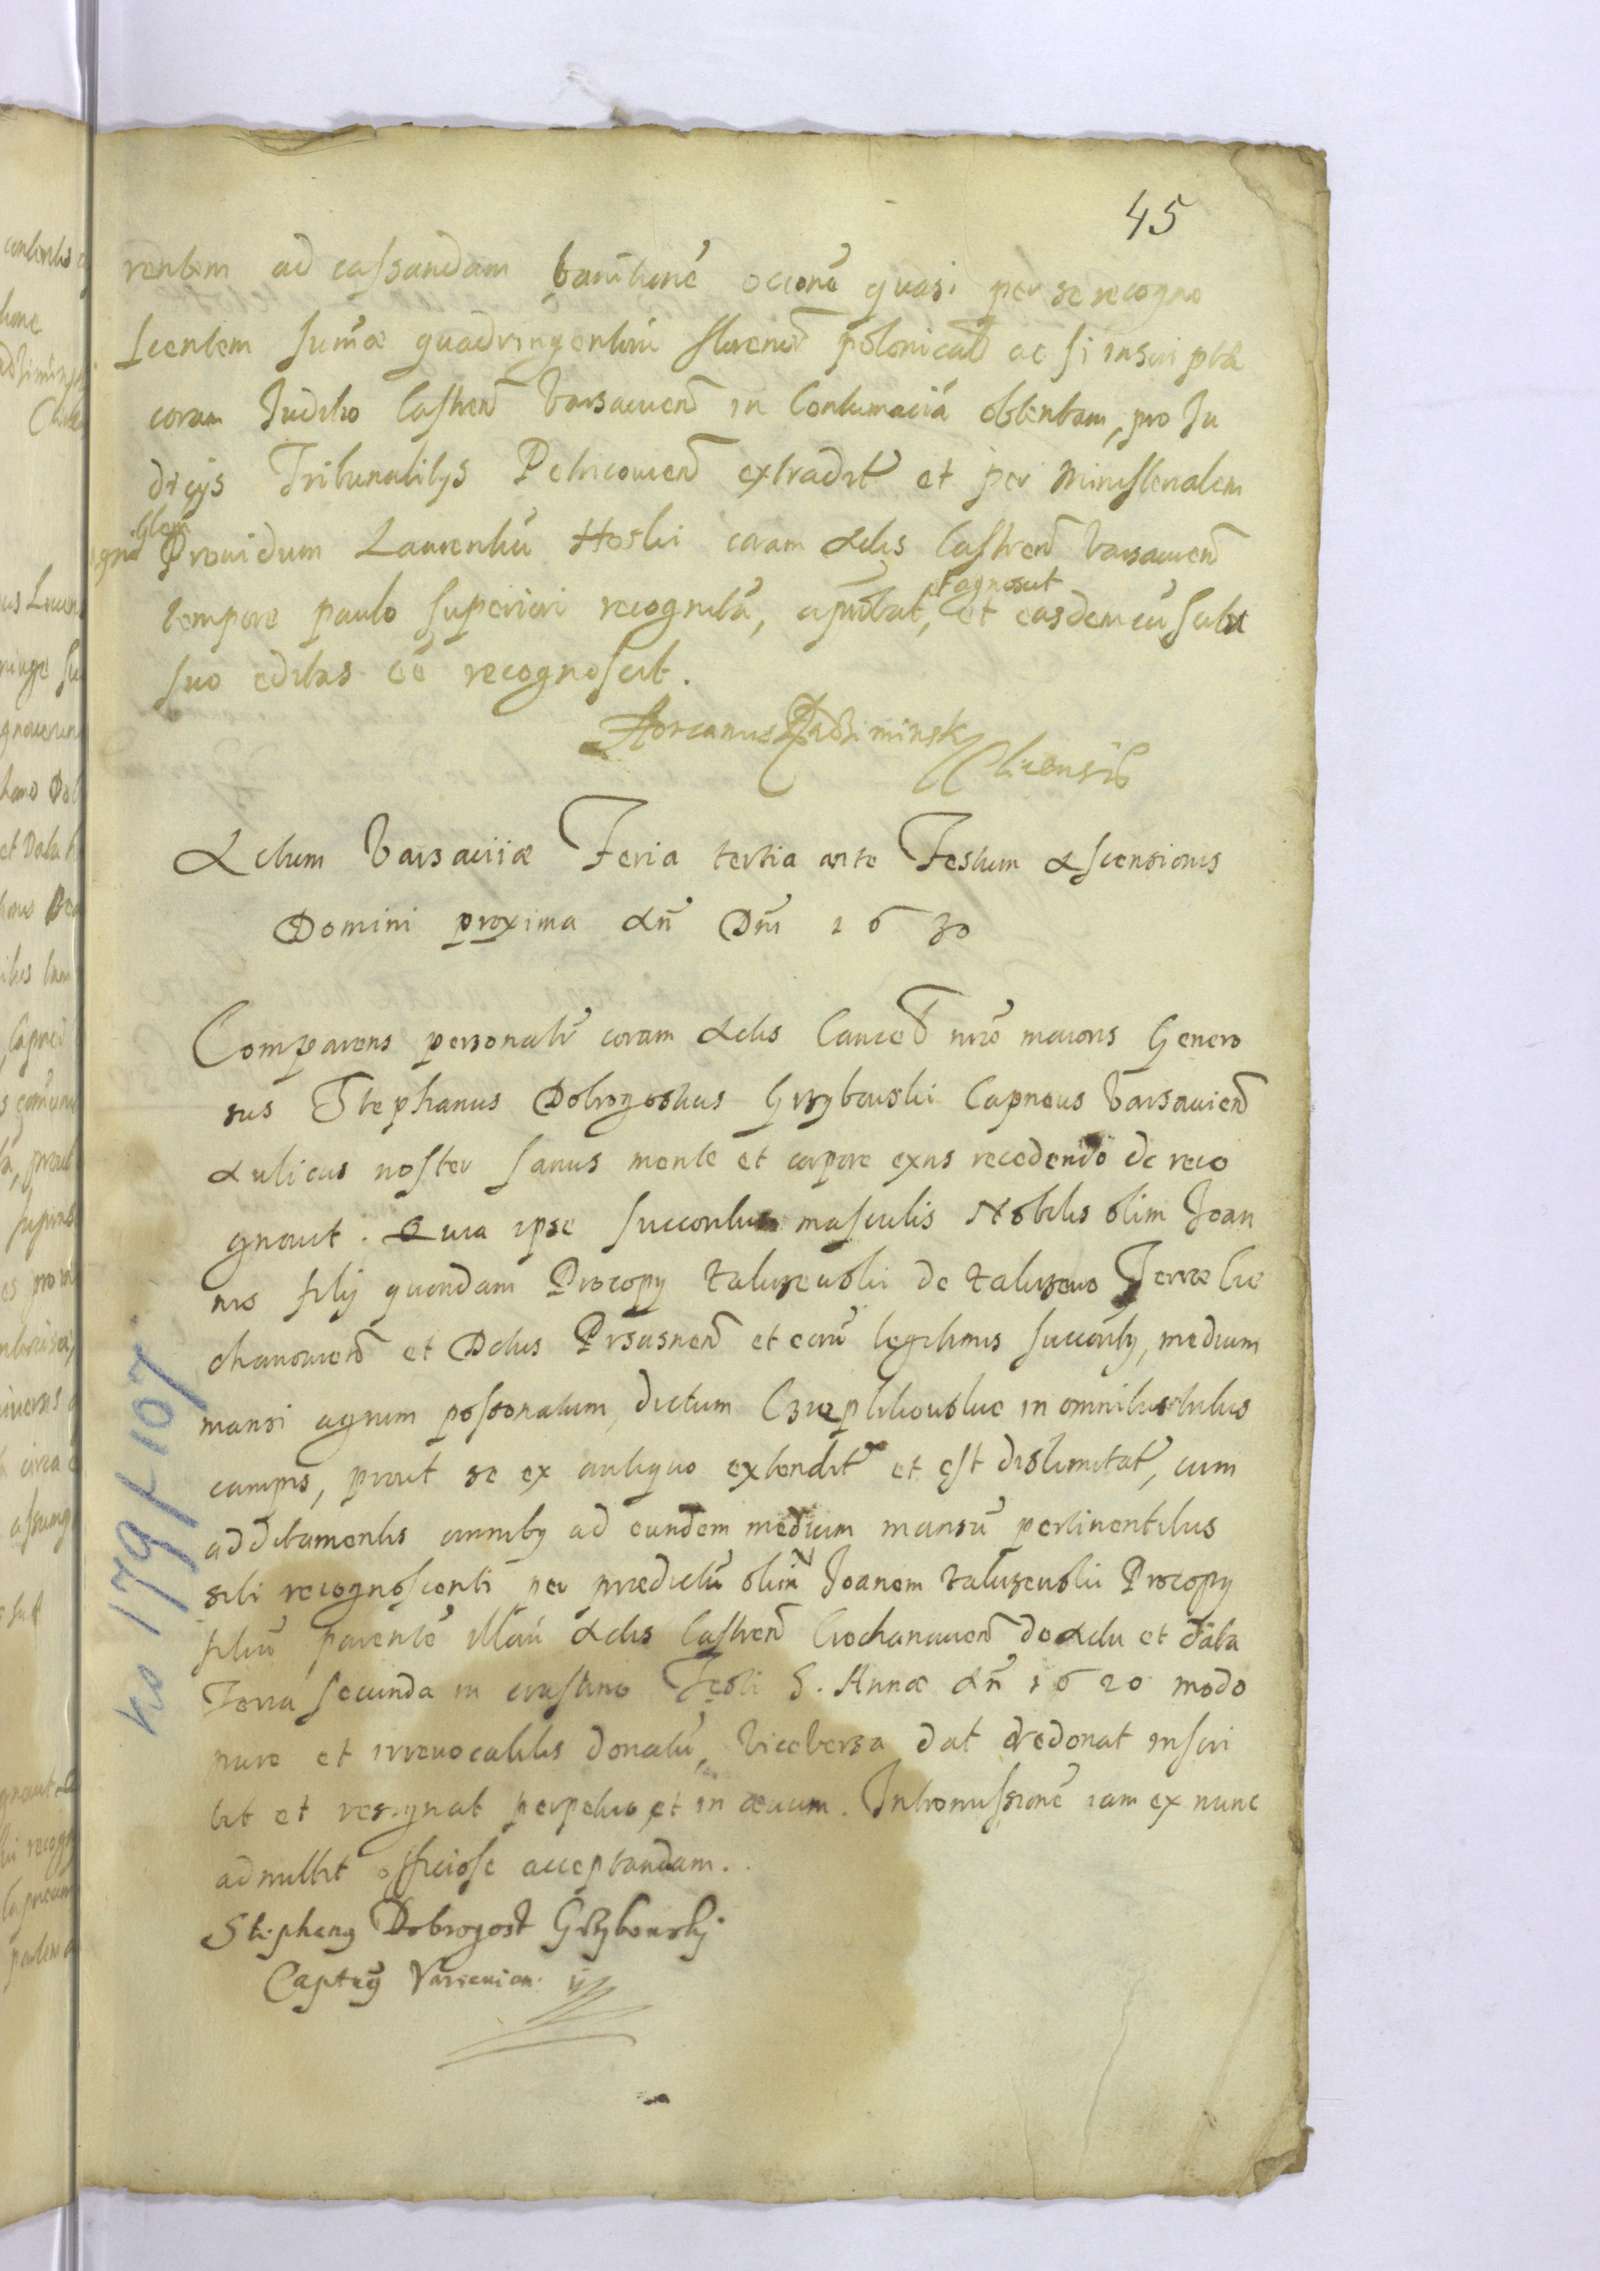 45
rentem ad cassandam banitionē occōnē quasi per se recogno
scentem sum̄æ quadringentorū florenor̄ polonicaľ ac si inscripta
coram Judicio Castren̄ Varsauien̄ in Contumaciā obtentam, pro Ju
dicijs Tribunalibꝫ Petricouien̄ extradit et per Ministerialem
Prouidum Laurentiū Hoski coram Actis Castren̄ Varsauien̄
et agnoscit
tempore paulo superiori recognitā, aprobat, et easdem cū scitu
suo editas eē recognoscit.
Florianus Radziminsky
Liuensis
Actum Varsauiæ Feria tertia ante Festum Ascensionis
Domini proxima Añ Dñi 1630
Comparens personalr̄ coram Actis Cancell nr̄æ maioris Genero
sus Stephanus Dobrogostius Grzybowski Capneus Varsauien̄
Aulicus noster sanus mente et corpore exn̄s recedendo de reco
gnouit. Quia ipse successoribus masculis Nobilis olim Joan
nis filij quondam Procopy Zaluzeuski de Zaluzewo Terræ Cie
chanouien̄ et Dctus Prsasnen̄ et eorū legitimis successoribꝫ, medium
mansi agrum possonatum, dictum in omnibus tribus
campis, prout se ex antiquo extendit et est dislimitat, cum
additamentis omnibꝫ ad eundem medium mansū pertinentibus
sibi recognoscenti per prædictū olim Joanem Zaluzeuski Procopy
filiū parentē Actis Castren̄ Ciechanouien̄ de Actu et data
Feria secunda in crastino Festi S. Annæ Añ 1620 modo
puro et irreuocabilis donatū, Viceversa dat et redonat inscri
bit et resignat perpetuo et in æuum. Intromissionē iam ex nunc
admittit officiose acceptandam.
Stephanꝰ Dobrogost Grzybowskj
Captꝰ Varsauien.
No 179/107